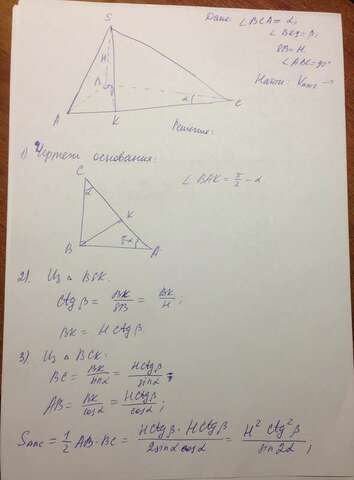 Дано: ∠BCA = α;
∠BKS = β;
SB = H
∠ABC = 90°
Найти: Vпир -
S
H
B
α
A
K
C
Решение:
1) Чертеж основания:
C
α
∠BAK = π/2 - α
K
B
A
2). Из ΔBSK:
ctg β = BK/SB = BK/H;
BK = H ctg β
3) Из ΔBCK:
BC = BK/sin α = H ctg β/sin α;
AB = BK/cos α = H ctg β/cos α;
SABC = 1/2 AB · BC = H ctg β · H ctg β/2 sin α cos α = H² ctg² β/sin 2α;